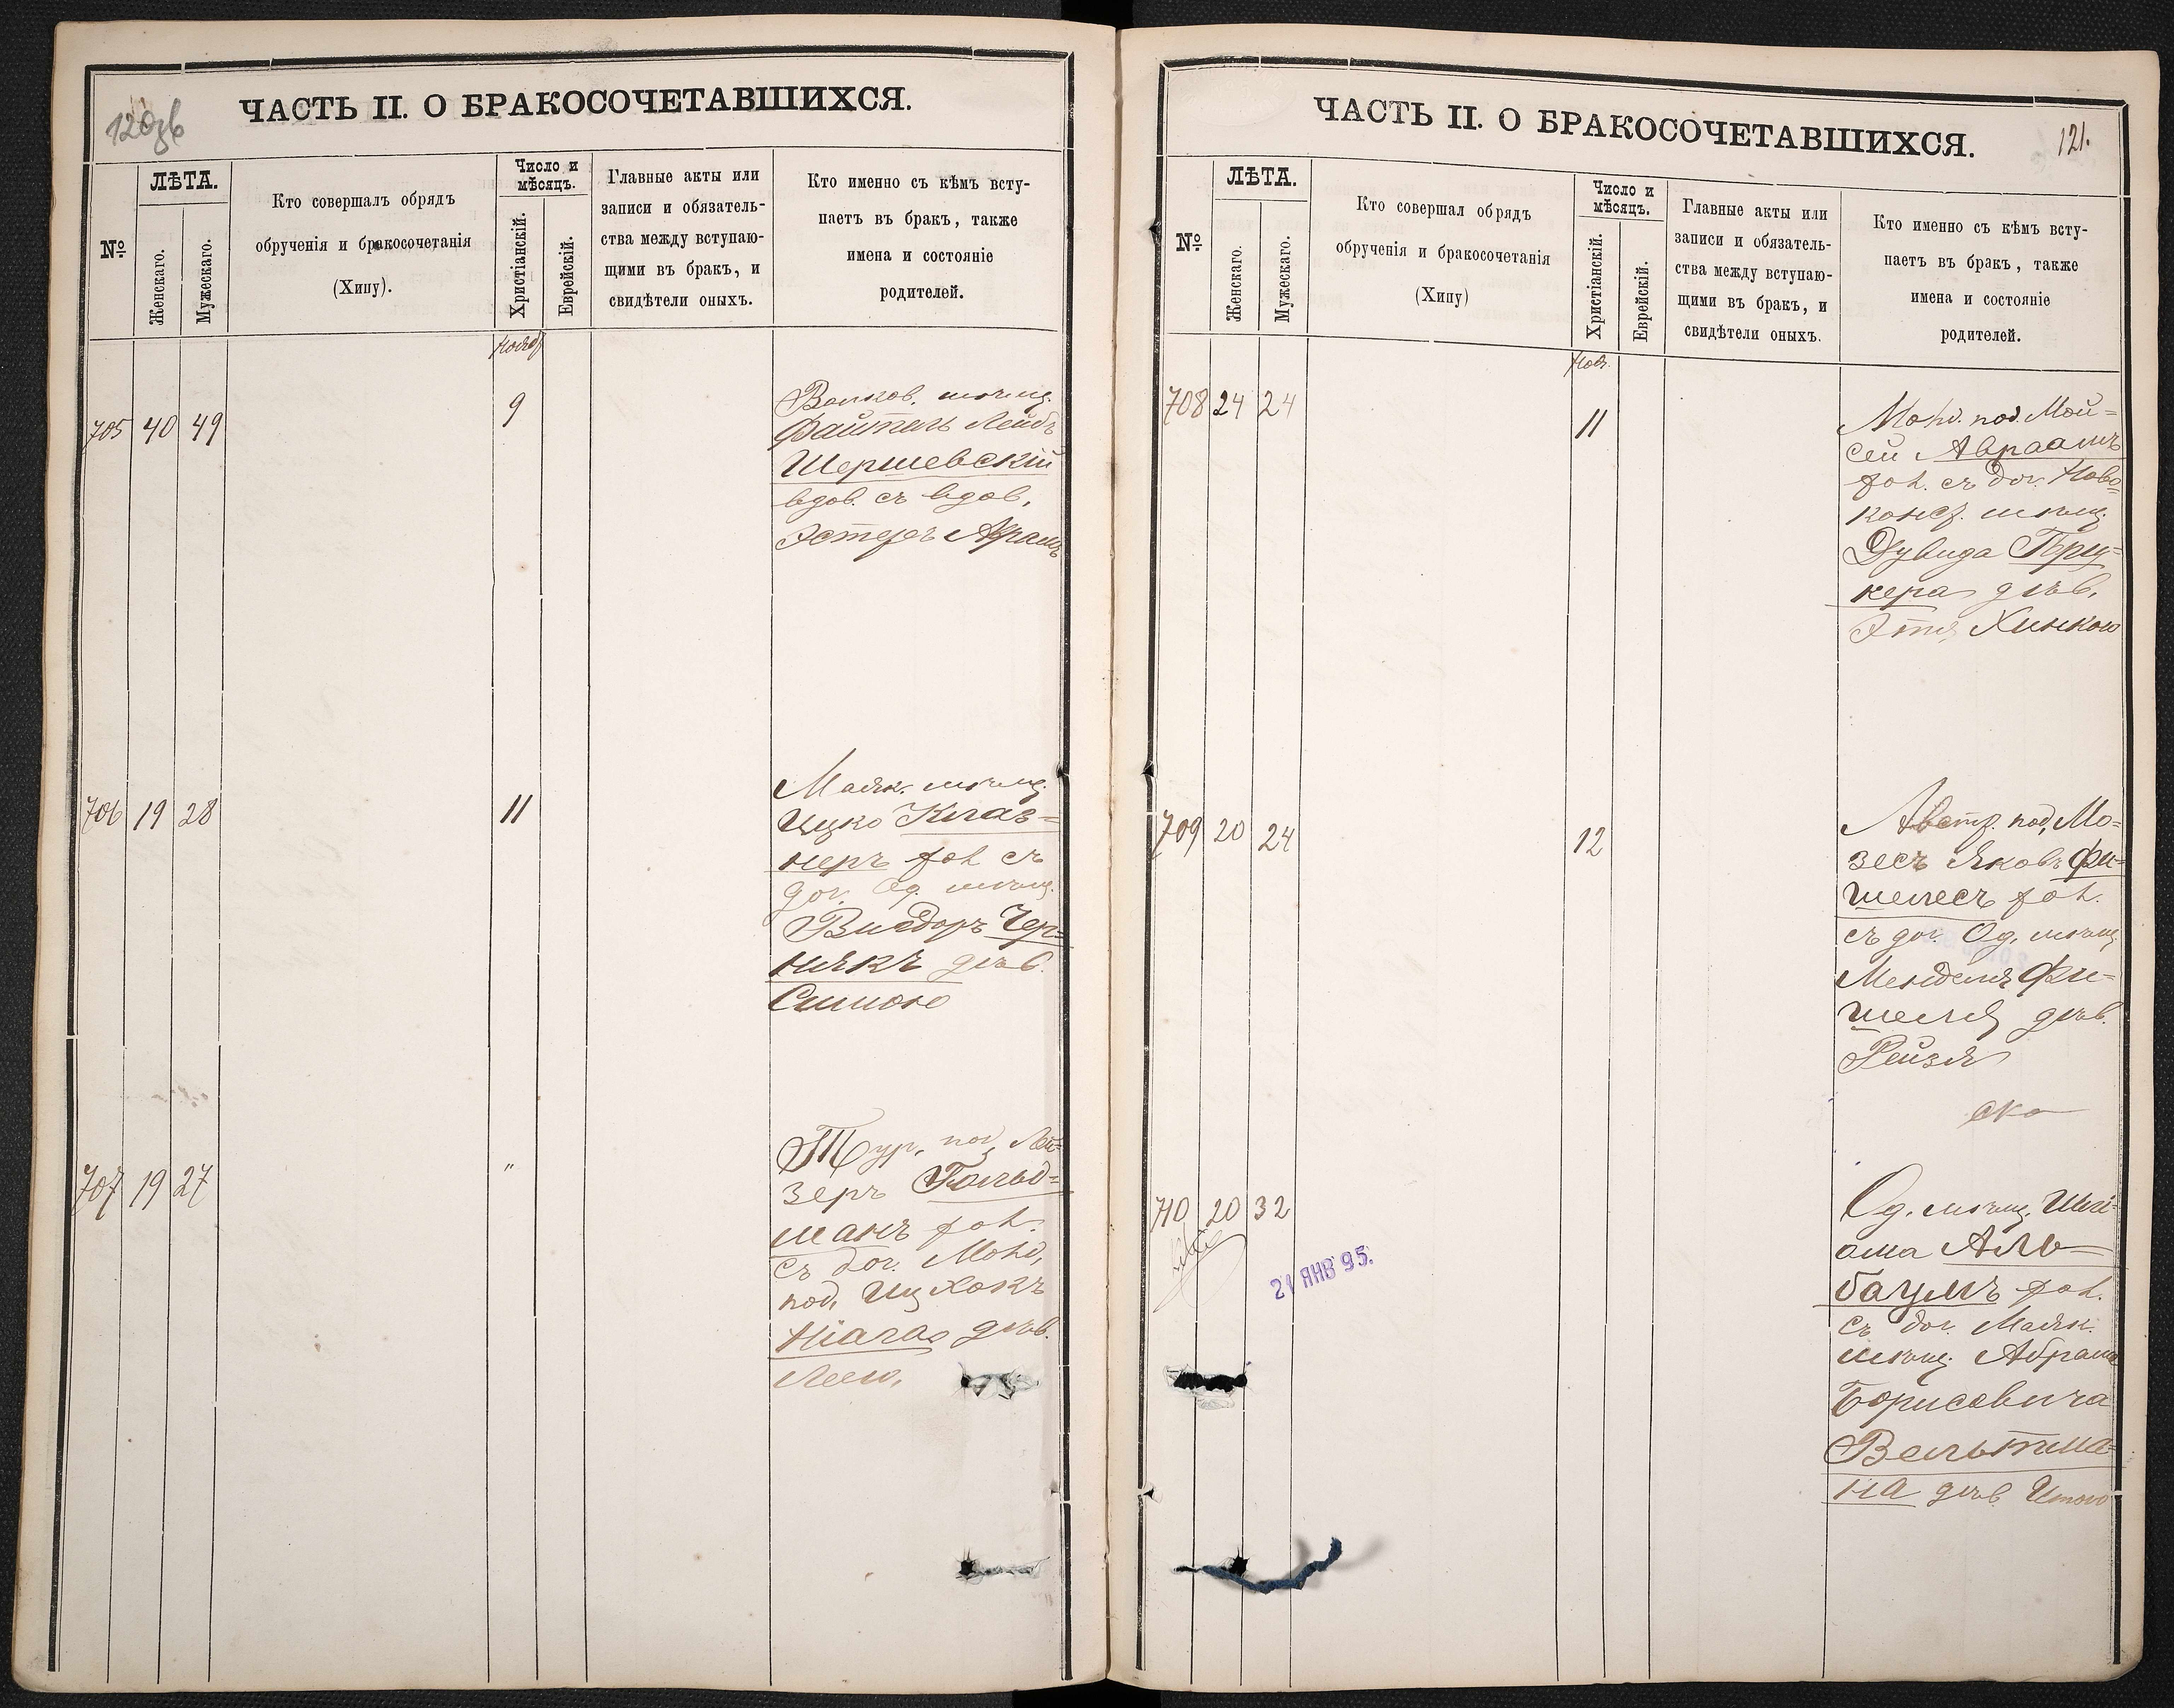 120об
ЧАСТЬ II. О БРАКОСОЧЕТАВШИХСЯ.
№
ЛѢТА.
Женскаго.
Мужескаго.
Кто совершалъ обрядъ
обрученія и бракосочетанія
(Хипу).
Число и
мѣсяцъ.
Христіанскій.
Еврейскій.
Главные акты или
записи и обязатель-
ства между вступаю-
щими въ бракъ, и
свидѣтели оныхъ.
Кто именно съ кѣмъ всту-
паетъ въ бракъ, также
имена и состояніе
родителей.
Нояб
705 40 49
9
Волков. мѣщ.
Файтель Лейбъ
Шершевскій
вдов. съ вдов.
Эстеръ
706 19 28
11
Маяк. мѣщ.
Ицко Клаз=
неръ хол съ
доч. Од. мѣщ.
Вигдоръ Чер=
някъ дѣв.
Симою
707 19 27
"
Тур. под. Лей=
зеръ Гольд=
манъ хол.
съ доч. Молд.
под. Ицхокъ
дѣв.
Леею.
ЧАСТЬ II. О БРАКОСОЧЕТАВШИХСЯ.
121.
№
ЛѢТА.
Женскаго.
Мужескаго.
Кто совершал обрядъ
обрученія и бракосочетанія
(Хипу)
Число и
мѣсяцъ.
Христіанскій.
Еврейскій.
Главные акты или
записи и обязатель-
ства между вступаю-
щими въ бракъ, и
свидѣтели оныхъ.
Кто именно съ кѣмъ всту-
паетъ въ бракъ, также
имена и состояніе
родителей.
Ноя.
708 24 24
11
Молд. под. Мой=
сей Авраамъ
хол. съ доч. Ново=
конст. мѣщ.
Дувида Пру=
кера дѣв.
Этя Хинкою
709 20 24
12
Австр. под. Мо=
зесъ Яковъ Фи=
шелесъ хол.
съ доч. Од. мѣщ.
Менделя Фи=
шеля дѣв.
Рейзя
ско
710 20 32
21 ЯНВ 95.
Од. мѣщ. Шлі=
ома Аль=
баумъ хол.
съ доч. Маяк.
мѣщ. Абрама
Борисовича
Вельтма=
на дѣв. Итою